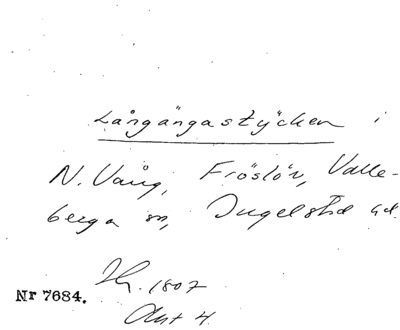 Långängastycken i
N. Vång, Fröslöv, Valle-
berga sn, Ingelstad hd.
1807
Nr 7684.
Akt 4.